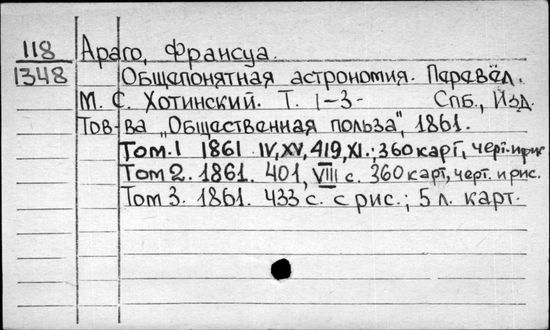 118 Араго, Франсуа.
1348 Общепонятная астрономия. Перевёл.
М. С. Хотинский. Т. 1-3- Спб., Изд.
Тов-ва "Общественная польза", 1861.
Том.1 1861 IV, XV, 419, XI.; 360 карт, черт. и рис
Том 2. 1861. 401, VIII с. 360 карт, черт. и рис.
Том 3. 1861. 433 с. с рис.; 5 л. карт.